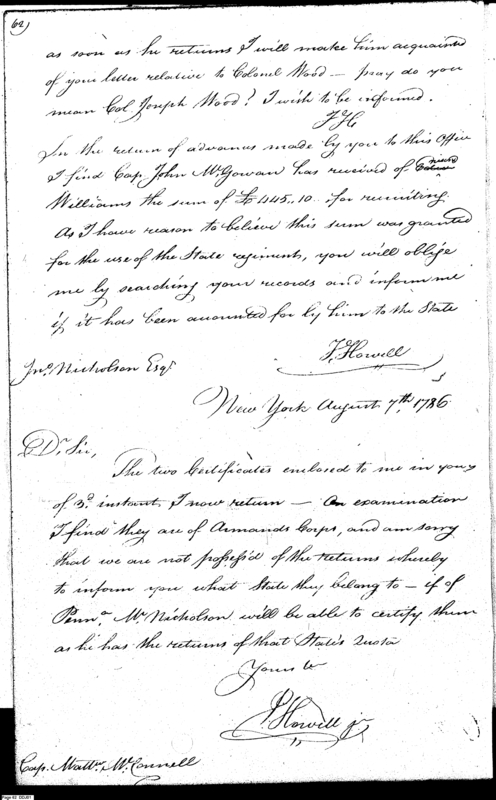 62
as soon as he returns I will make him acquainted
of your letter relative to Colonel Wood — pray do you
mean Col Joseph Wood? I wish to be informed.
JH
In the return of advances made by you to this Office
I find Cap. John McGowan has received of
Williams the sum of £445..10.. for recruiting.
As I have reason to believe this sum was granted
for the use of the State regiment, you will oblige
me by searching your records and inform me
if it has been accounted for by him to the State
J. Howell
Jno. Nicholson Esqr
New York August 7th. 1786
Dr. Sir,
The two Certificates enclosed to me in yours
of 3d. instant I now return — On examination
I find they are of Armands Corps, and am sorry
that we are not possess'd of the returns whereby
to inform you what State they belong to — if of
Penna. Mr Nicholson will be able to certify them
as he has the returns of that State's Quota
Yours &
J Howell jr
Cap. Mattw. McConnell
Page 62